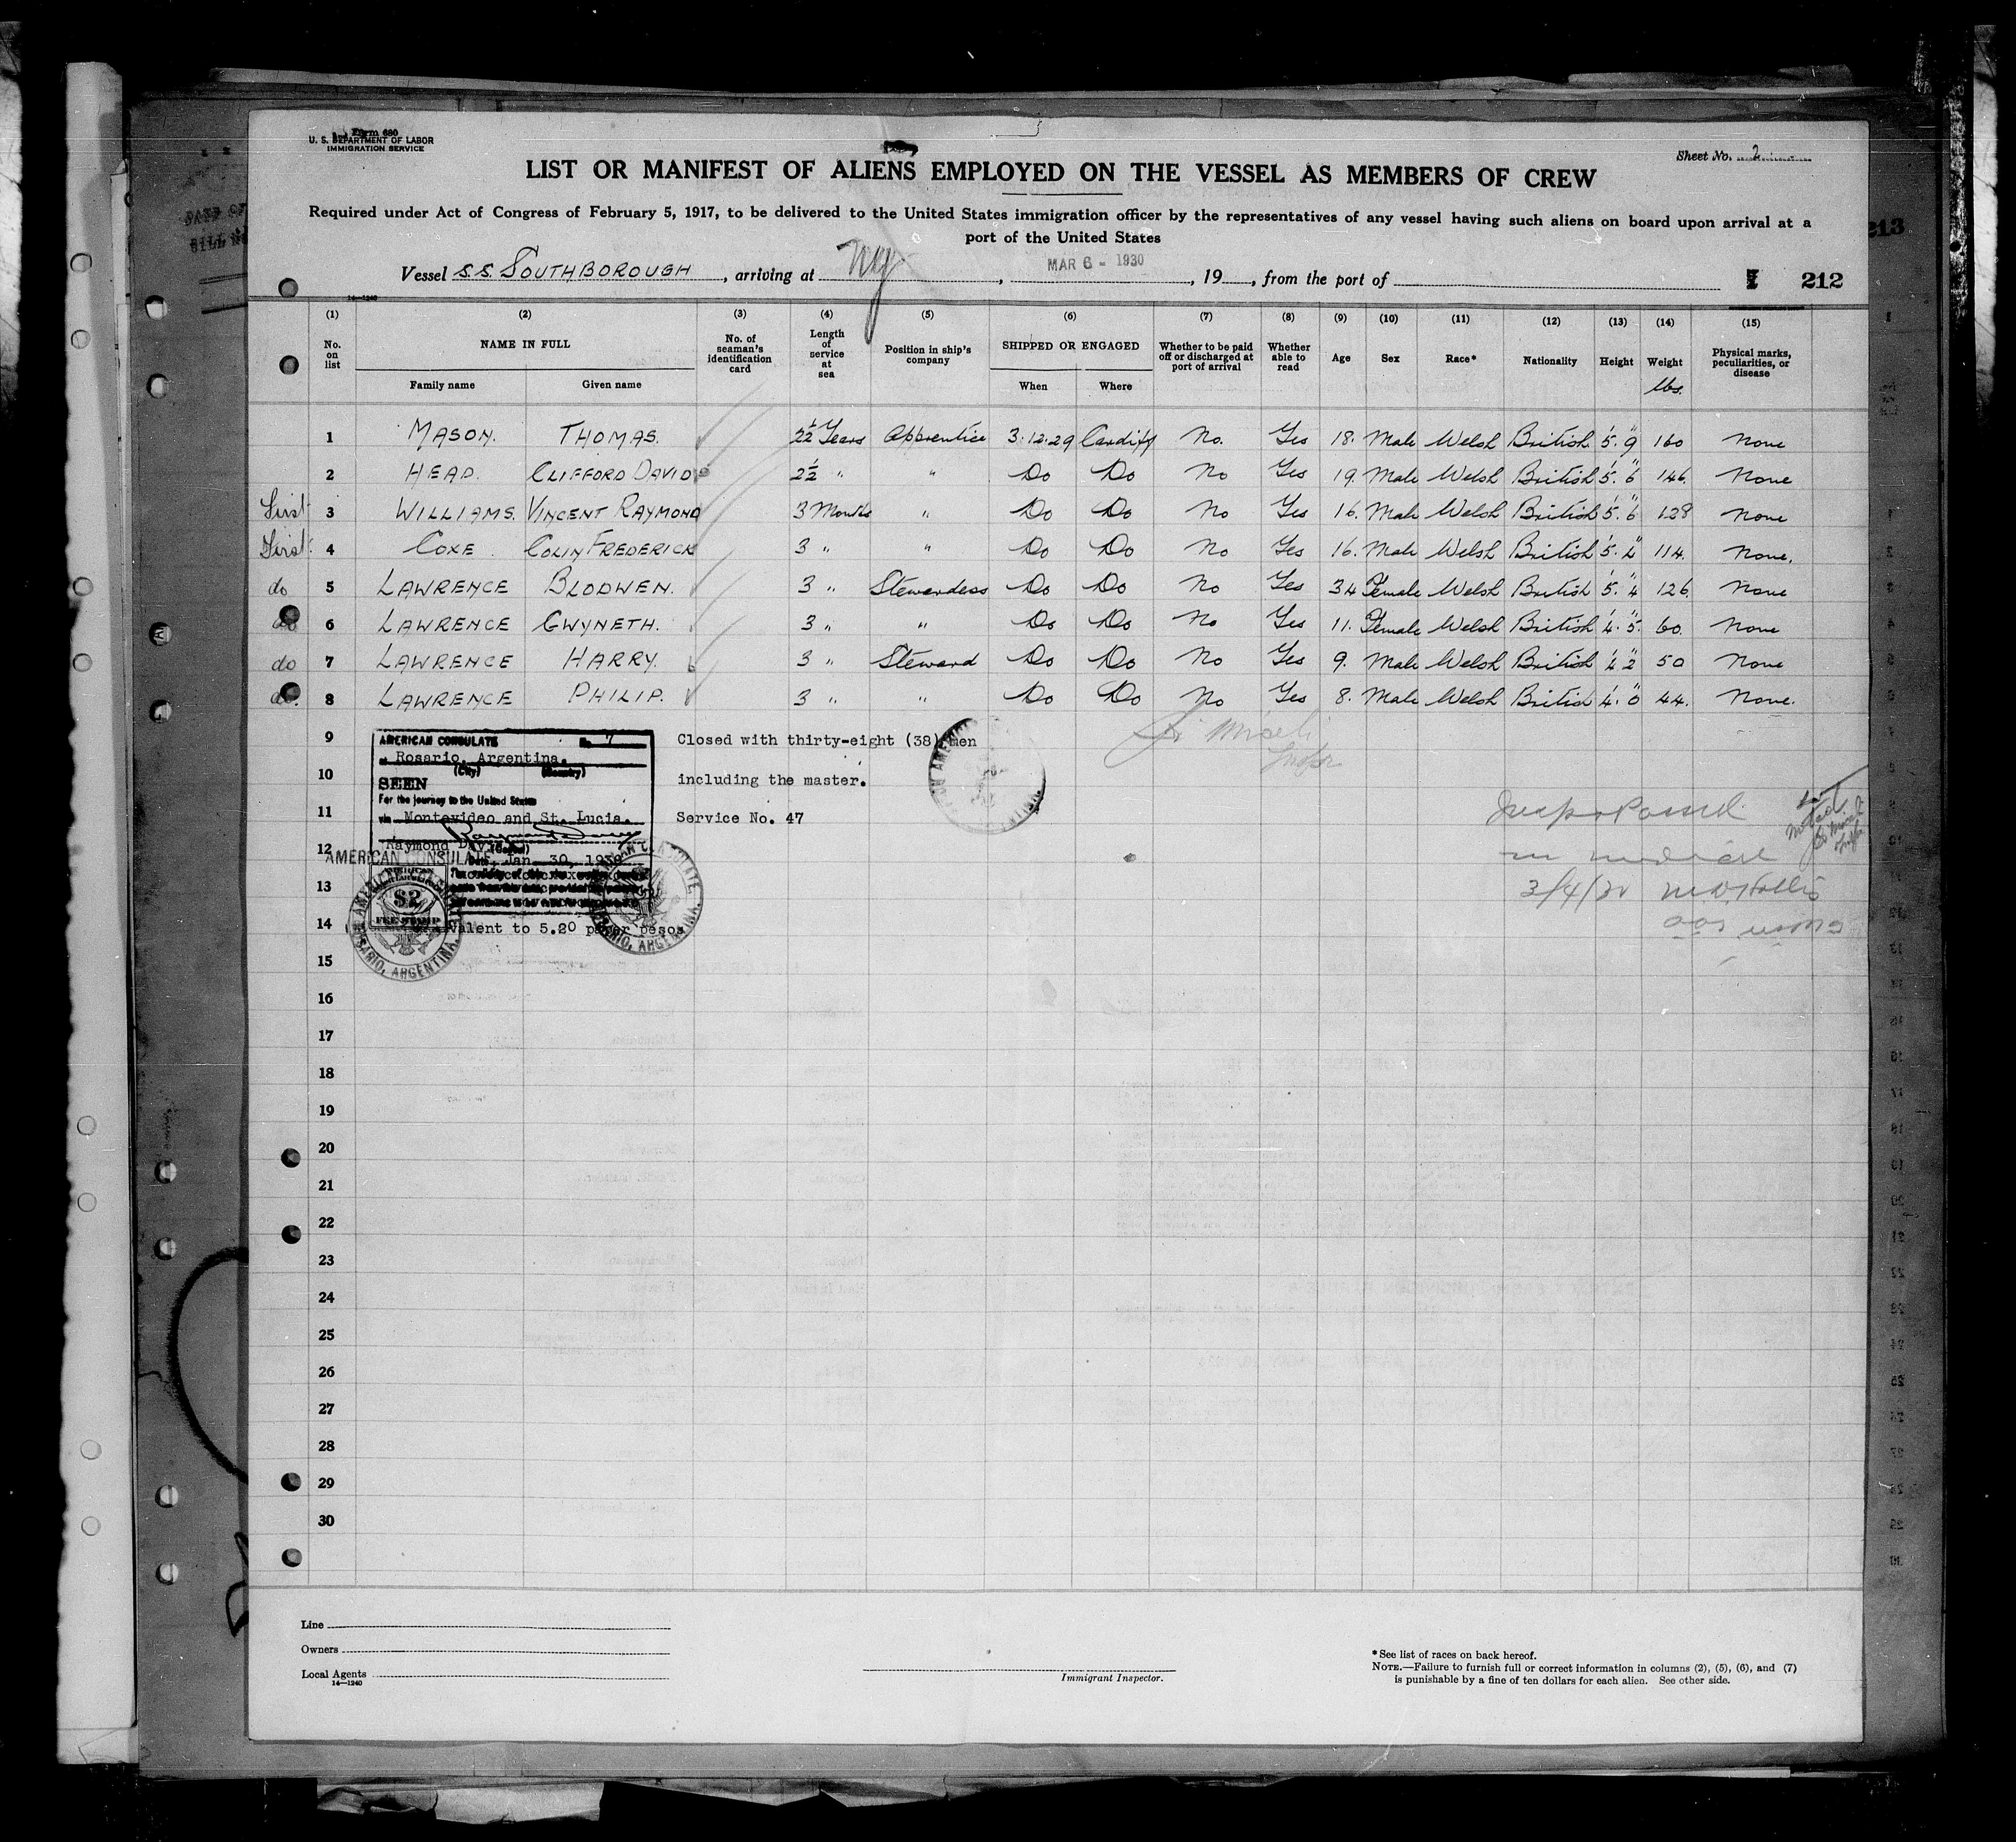 Form 680
U. S. DEPARTMENT OF LABOR
IMMIGRATION SERVICE
Sheet No. 2
LIST OR MANIFEST OF ALIENS EMPLOYED ON THE VESSEL AS MEMBERS OF CREW
Required under Act of Congress of February 5, 1917, to be delivered to the United States immigration officer by the representatives of any vessel having such aliens on board upon arrival at a
port of the United States
Vessel S.S. SOUTHBOROUGH, arriving at NY, MAR 6 - 1930, 19, from the port of
212
213
14—1240
(1) (2) (3) (4) (5) (6) (7) (8) (9) (10) (11) (12) (13) (14) (15)
No. on list
NAME IN FULL
Family name Given name
No. of seaman's identification card
Length of service at sea
Position in ship's company
SHIPPED OR ENGAGED
When Where
Whether to be paid off or discharged at port of arrival
Whether able to read
Age Sex Race* Nationality Height Weight lbs.
Physical marks, peculiarities, or disease
1 MASON. THOMAS. 2½ Years Apprentice 3.12.29 Cardiff No. Yes 18. Male Welsh British 5' 9" 160 None
2 HEAD. CLIFFORD DAVID 2½ " " Do Do No Yes 19. Male Welsh British 5' 6" 146. None
First 3 WILLIAMS. VINCENT RAYMOND 3 Months " Do Do No Yes 16. Male Welsh British 5' 6" 128 None
First 4 COXE COLIN FREDERICK 3 " " Do Do No Yes 16. Male Welsh British 5' 4" 114. None.
do 5 LAWRENCE BLODWEN. 3 " Stewardess Do Do No Yes 34 Female Welsh British 5' 4" 126. None
do 6 LAWRENCE GWYNETH. 3 " " Do Do No Yes 11. Female Welsh British 4' 5" 60. None
do 7 LAWRENCE HARRY. 3 " Steward Do Do No Yes 9. Male Welsh British 4' 2" 50 None
do. 8 LAWRENCE PHILIP. 3 " " Do Do No Yes 8. Male Welsh British 4' 0" 44. None.
9
10
11
12
13
14
15
16
17
18
19
20
21
22
23
24
25
26
27
28
29
30
AMERICAN CONSULATE No. 7
at Rosario, Argentina.
(City) (Country)
SEEN
For the journey to the United States
via Montevideo and St. Lucia.
Raymond Davis
(Consul)
AMERICAN CONSULATE, Jan. 30, 1930
$2
FEE STAMP
valent to 5.20 paper pesos
ROSARIO, ARGENTINA.
Closed with thirty-eight (38) men
including the master.
Service No. 47
Insp + Passed
3/4/30
Line
Owners
Local Agents
14—1240
Immigrant Inspector.
*See list of races on back hereof.
NOTE.—Failure to furnish full or correct information in columns (2), (5), (6), and (7)
is punishable by a fine of ten dollars for each alien. See other side.